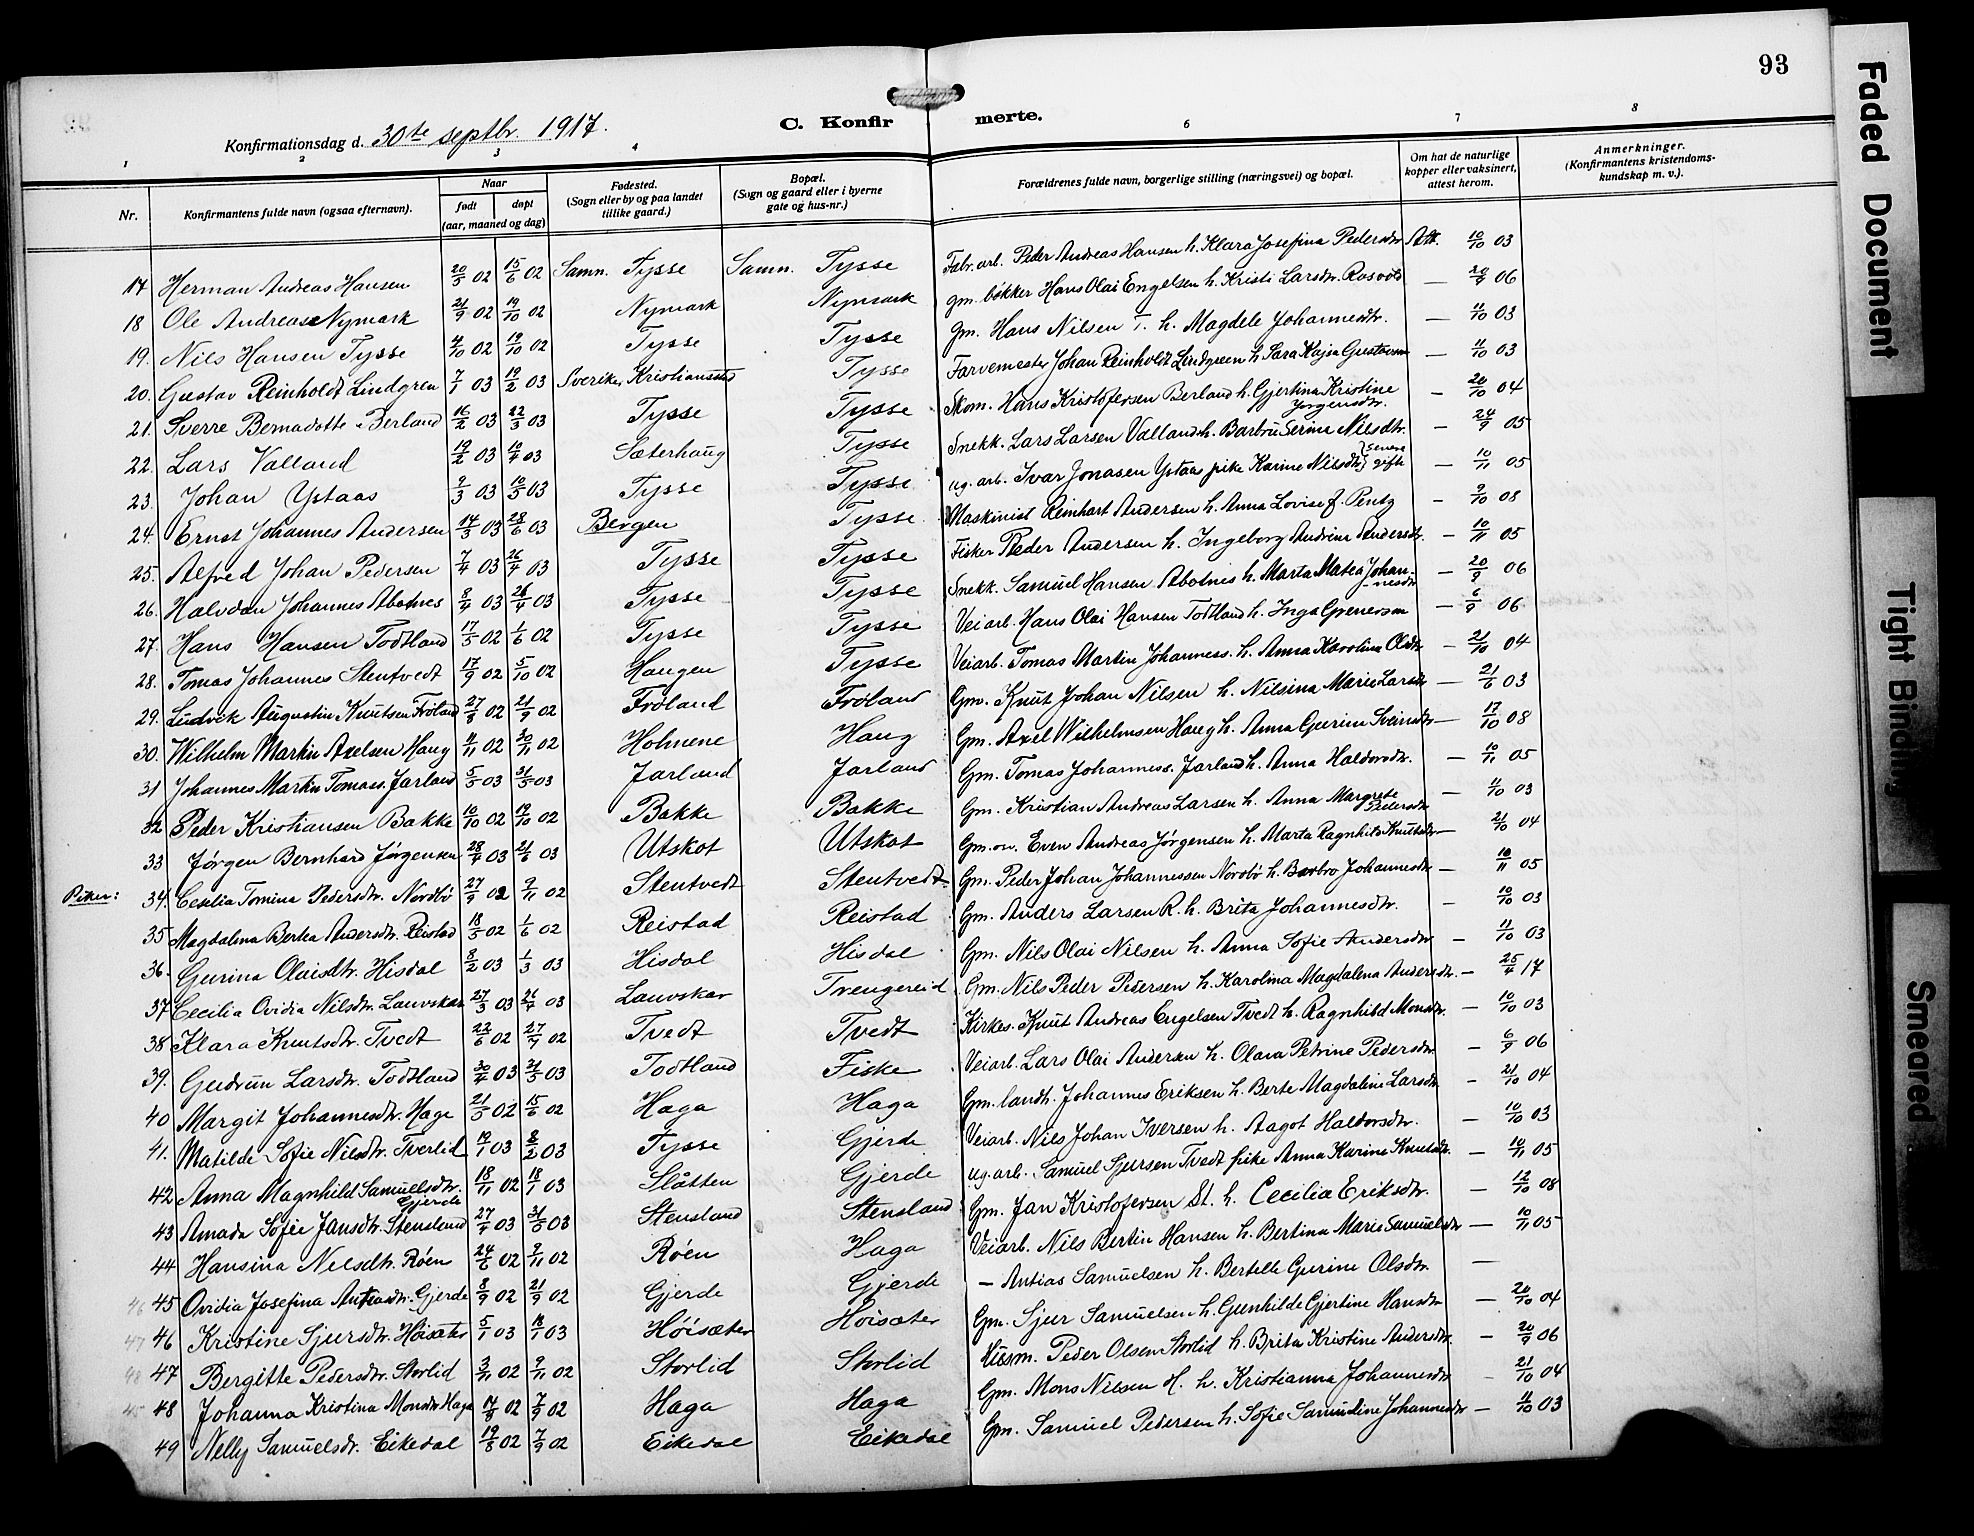 93
Konfirmationsdag d. 30te septbr. 1917.
C. Konfirmerte.
1 2 3 4 6 7 8
Nr.
Konfirmantens fulde navn (ogsaa efternavn).
Naar
født døpt
(aar, maaned og dag)
Fødested.
(Sogn eller by og paa landet
tillike gaard.)
Bopæl.
(Sogn og gaard eller i byerne
gate og hus-nr.)
Forældrenes fulde navn, borgerlige stilling (næringsvei) og bopæl.
Om hat de naturlige
kopper eller vaksinert,
attest herom.
Anmerkninger.
(Konfirmantens kristendoms-
kundskap m. v.).
17 Herman Andreas Hansen 20/5 02 15/6 02 Samn. Tysse Samn. Tysse Fabr. arb. Peder Andreas Hansen h. Klara Josefina Pedersdtr. Att. 10/10 03
18 Ole Andreas Nymark 21/9 02 19/10 02 Nymark Nymark gm. bøkker Hans Olai Engelsen h. Kristi Larsdtr. — 20/9 06
19. Nils Hansen Tysse 4/10 02 19/10 02 Tysse Tysse Gm. Hans Nilsen T. h. Magdele Johannesdtr. — 11/10 03
20. Gustav Reinholdt Lindgren 7/1 03 19/2 03 Sverike, Kristianstad Tysse Farvemester Johan Reinholdt Lindgreen h. Sara Kajsa — 11/10 03
21. Sverre Bernadotte Berland 16/2 03 22/3 03 Tysse Tysse Skom. Hans Kristofersen Berland h. Gjertina Kristine Jørgensdtr. — 20/10 04
22. Lars Valland 19/2 03 10/4 03 Sæterhaug Tysse Snekk. Lars Larsen Valland h. Barbru Serina Nilsdtr. — 24/9 05
23. Johan Ystaas 9/3 03 10/5 03 Tysse Tysse ug. arb. Ivar Jonasen Ystaas pike Karine Nilsdtr. (senere gift) — 10/11 05
24. Ernst Johannes Andersen 14/3 03 28/6 03 Bergen Tysse Maskinist Reinhart Andersen h. Anna Lovise f. Pentz — 9/10 08
25. Alfred Johan Pedersen 7/4 03 26/4 03 Tysse Tysse Fisker Peder Andersen h. Ingeborg Andrine Andersdtr. — 10/11 05
26. Halvdan Johannes Abotnes 8/4 03 26/4 03 Tysse Tysse Snekk. Samuel Hansen Abotnes h. Marta Matea Johannesdtr — 20/9 06
27. Hans Hansen Todtland 17/5 02 1/6 02 Tysse Tysse Veiarb. Hans Olai Hansen Todtland h. Inga — 6/9 06
28. Tomas Johannes Stentvedt 17/9 02 5/10 02 Haugen Tysse Veiarb. Tomas Martin Johanness. h. Anna Karolina Olsdtr — 21/10 04
29. Ludvik Augustin Knutsen Frøland 27/8 02 21/9 02 Frøland Frøland Gm. Knut Johan Nilsen h. Nilsina Marie Larsdtr — 21/6 03
30. Wilhelm Martin Axelsen Haug 11/11 02 30/11 02 Holmene Haug Gm. Axel Wilhelmsen Haug h. Anna Gurine — 17/10 08
31 Johannes Martin Tomass. Jarland 5/5 03 31/5 03 Jarland Jarland Gm. Tomas Johanness. Jarland h. Anna Haldorsdtr. — 10/11 05
32 Peder Kristiansen Bakke 10/10 02 19/10 02 Bakke Bakke Gm. Kristian Andreas Larsen h. Anna Margrete Pedersdtr — 11/10 03
33 Jørgen Bernhard Jørgensen 28/4 03 21/6 03 Utskot Utskot Gm. Even Andreas Jørgensen h. Marta Ragnhild Knutsdtr — 21/10 04
Piker: 34. Cecilia Tomina Pedersdtr. Nordbø 27/9 02 9/11 02 Stentvedt Stentvedt Gm. Peder Johan Johannessen Nordbø h. Barbro Johannesdtr — 10/11 05
35 Magdalina Bertea Andersdtr. Reistad 18/5 02 1/6 02 Reistad Reistad Gm. Anders Larsen R. h. Brita Johannesdtr. — 10/10 03
36. Gurina Olaisdtr. Hisdal 8/2 03 1/3 03 Hisdal Hisdal Gm. Nils Olai Nilsen h. Anna Sofie Andersdtr — 11/10 03
37 Cecilia Ovidia Nilsdtr. Lauvskar 27/3 03 26/4 03 Lauvskar Trengereid Gm. Nils Peder Pedersen h. Karolina Magdalena Andersdtr. — 25/4 17
38 Klara Knutsdtr. Tvedt 22/6 02 27/7 02 Tvedt Tvedt Kirkes. Knut Andreas Engelsen Tvedt h. Ragnhild Monsdtr. — 10/10 03
39. Gudrun Larsdtr. Todtland 30/4 03 31/5 03 Todtland Fiske Veiarb. Lars Olai Andersen h. Olava Petrine Pedersdtr. — 6/9 06
40 Margit Johannesdtr. Hage 21/5 02 15/6 02 Haga Haga Gm. landh. Johannes Eriksen h. Berte Magdaline Larsdtr — 21/10 04
41. Matilde Sofie Nilsdtr. Tverlid 19/1 03 8/2 03 Tysse Gjerde Veiarb. Nils Johan Iversen h. Aagot Haldorsdtr. — 10/10 03
42 Anna Magnhild Samuelsdtr. Gjerde 18/11 02 18/1 03 Slåtten Gjerde ug. arb. Samuel Sjursen Tvedt pike Anna Karine Knutsdtr. — 10/11 05
43 Amada Sofie Jansdtr. Stensland 27/4 03 31/5 03 Stensland Stensland Gm. Jan Kristofersen St. h. Cecilia Eriksdtr. — 12/10 08
44 Hansina Nilsdtr. Røen 24/6 02 9/11 02 Røen Haga Veiarb. Nils Bertin Hansen h. Bertina Marie Samuelsdtr — 10/11 05
46 45 Ovidia Josefina Antiasdtr. Gjerde 8/9 02 21/9 02 Gjerde Gjerde — Antias Samuelsen h. Bertelle Gurine Olsdtr. —
47 46 Kristine Sjursdtr. Høisæter 5/1 03 18/1 03 Høisæter Høisæter Gm. Sjur Samuelsen h. Gunhilde Gjertine Hansdtr — 20/10 04
48 47 Bergitte Pedersdtr. Storlid 3/11 02 9/11 02 Storlid Storlid Husm. Peder Olsen Storlid h. Brita Kristine Andersdtr. — 20/9 06
45 48 Johanna Kristina Monsdtr Haga 17/8 02 7/9 02 Haga Haga Gm. Mons Nilsen H. h. Kristianna Johannesdtr — 21/10 04
49 Nelly Samuelsdtr. Eikedal 19/8 02 7/9 02 Eikedal Eikedal Gm. Samuel Pedersen h. Sofie Samudine Johannesdtr — 11/10 03
Faded Document
Tight Binding
Smeared